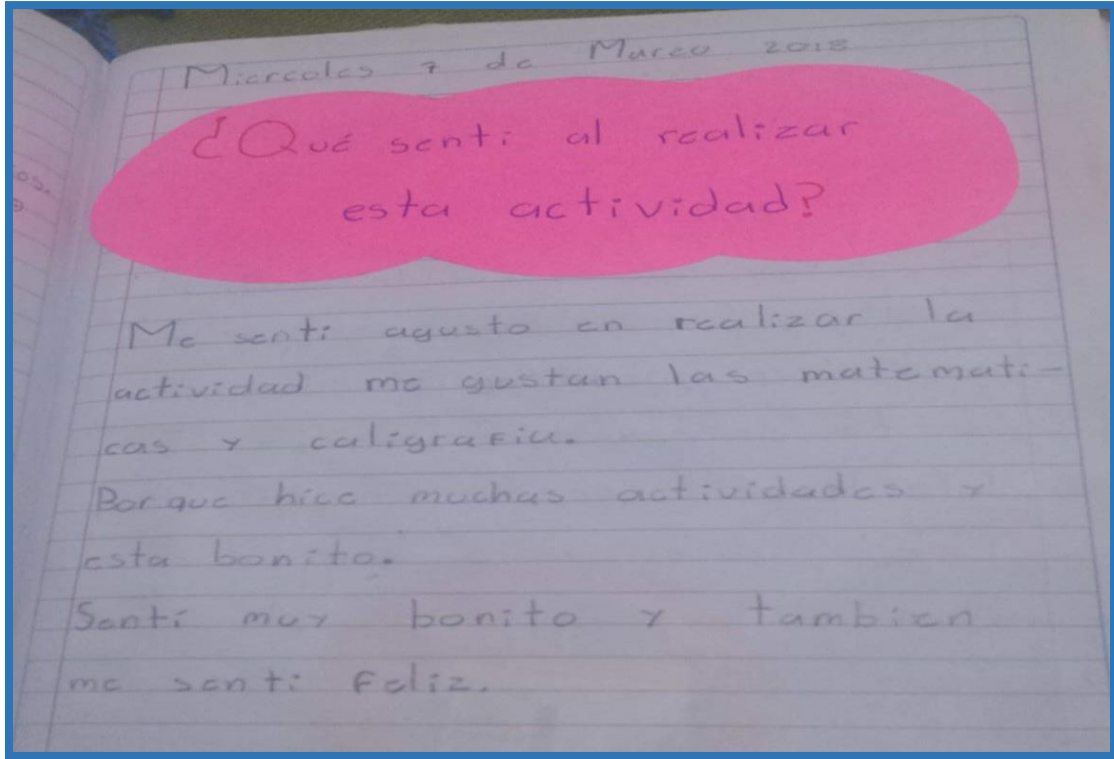 Miercoles 7 de Marzo 2018
¿Qué senti al realizar
esta actividad?
Me senti agusto en realizar la
actividad me gustan las matemati-
cas y caligrafia.
Porque hice muchas actividades y
esta bonito.
Sentí muy bonito y tambien
me senti feliz.
os.